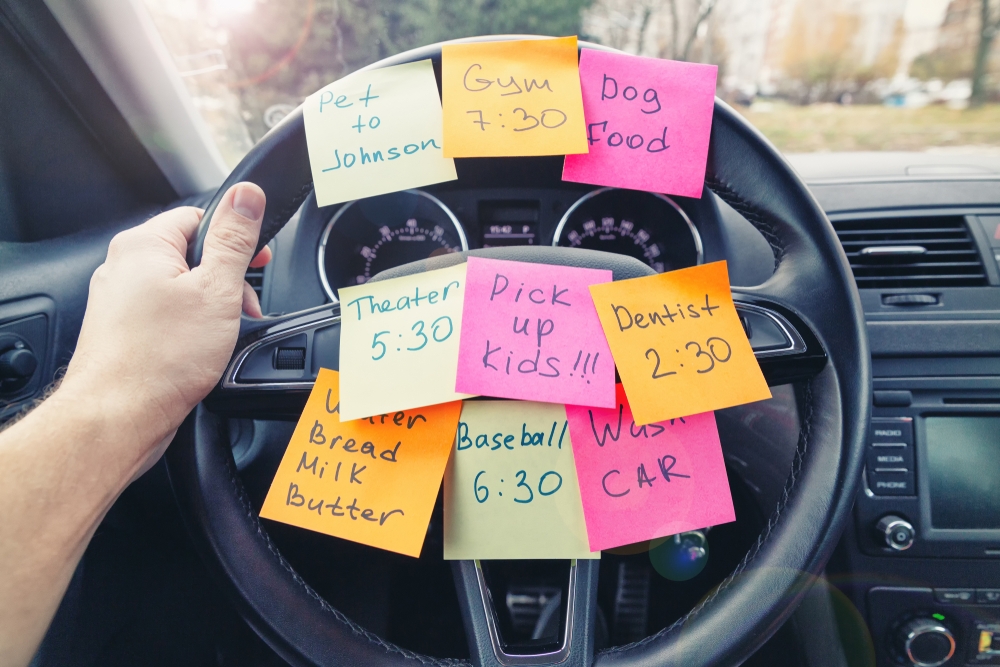 Pet
to
Johnson
Gym
7:30
Dog
Food
Theater
5:30
Pick
up
Kids!!!
Dentist
2:30
Bread
Milk
Butter
Baseball
6:30
Wash
CAR
RADIO
MEDIA
PHONE